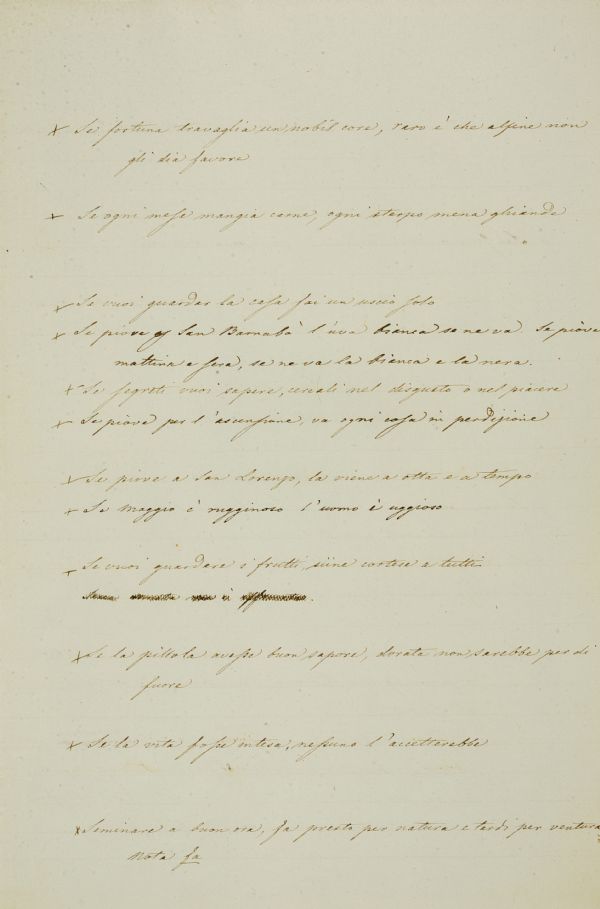 + Se fortuna travaglia un nobil core, raro è che alfine non
gli dia favore
+ Se ogni mese mangia carne, ogni sterpo mena ghiande
+ Se vuoi guardar la casa fai un uscio solo
+ Se piove San Barnabà l'uva bianca se ne va. Se piove
mattina e sera, se ne va la bianca e la nera.
+ Se segreti vuoi sapere, cercali nel disgusto o nel piacere
+ Se piove per l'ascensione, va ogni cosa in perdizione
+ Se piove a San Lorenzo, la viene a otta e a tempo
+ Se Maggio è rugginoso l'uomo è uggioso
+ Se vuoi guardare i frutti, siine cortese a tutti
+ Se la pillola avesse buon sapore, dorata non sarebbe per di
fuore
+ Se la vita fosse intesa, nessuno l'accetterebbe
+ Seminare a buon ora, fa presto per natura e tardi per ventura
Nota fa